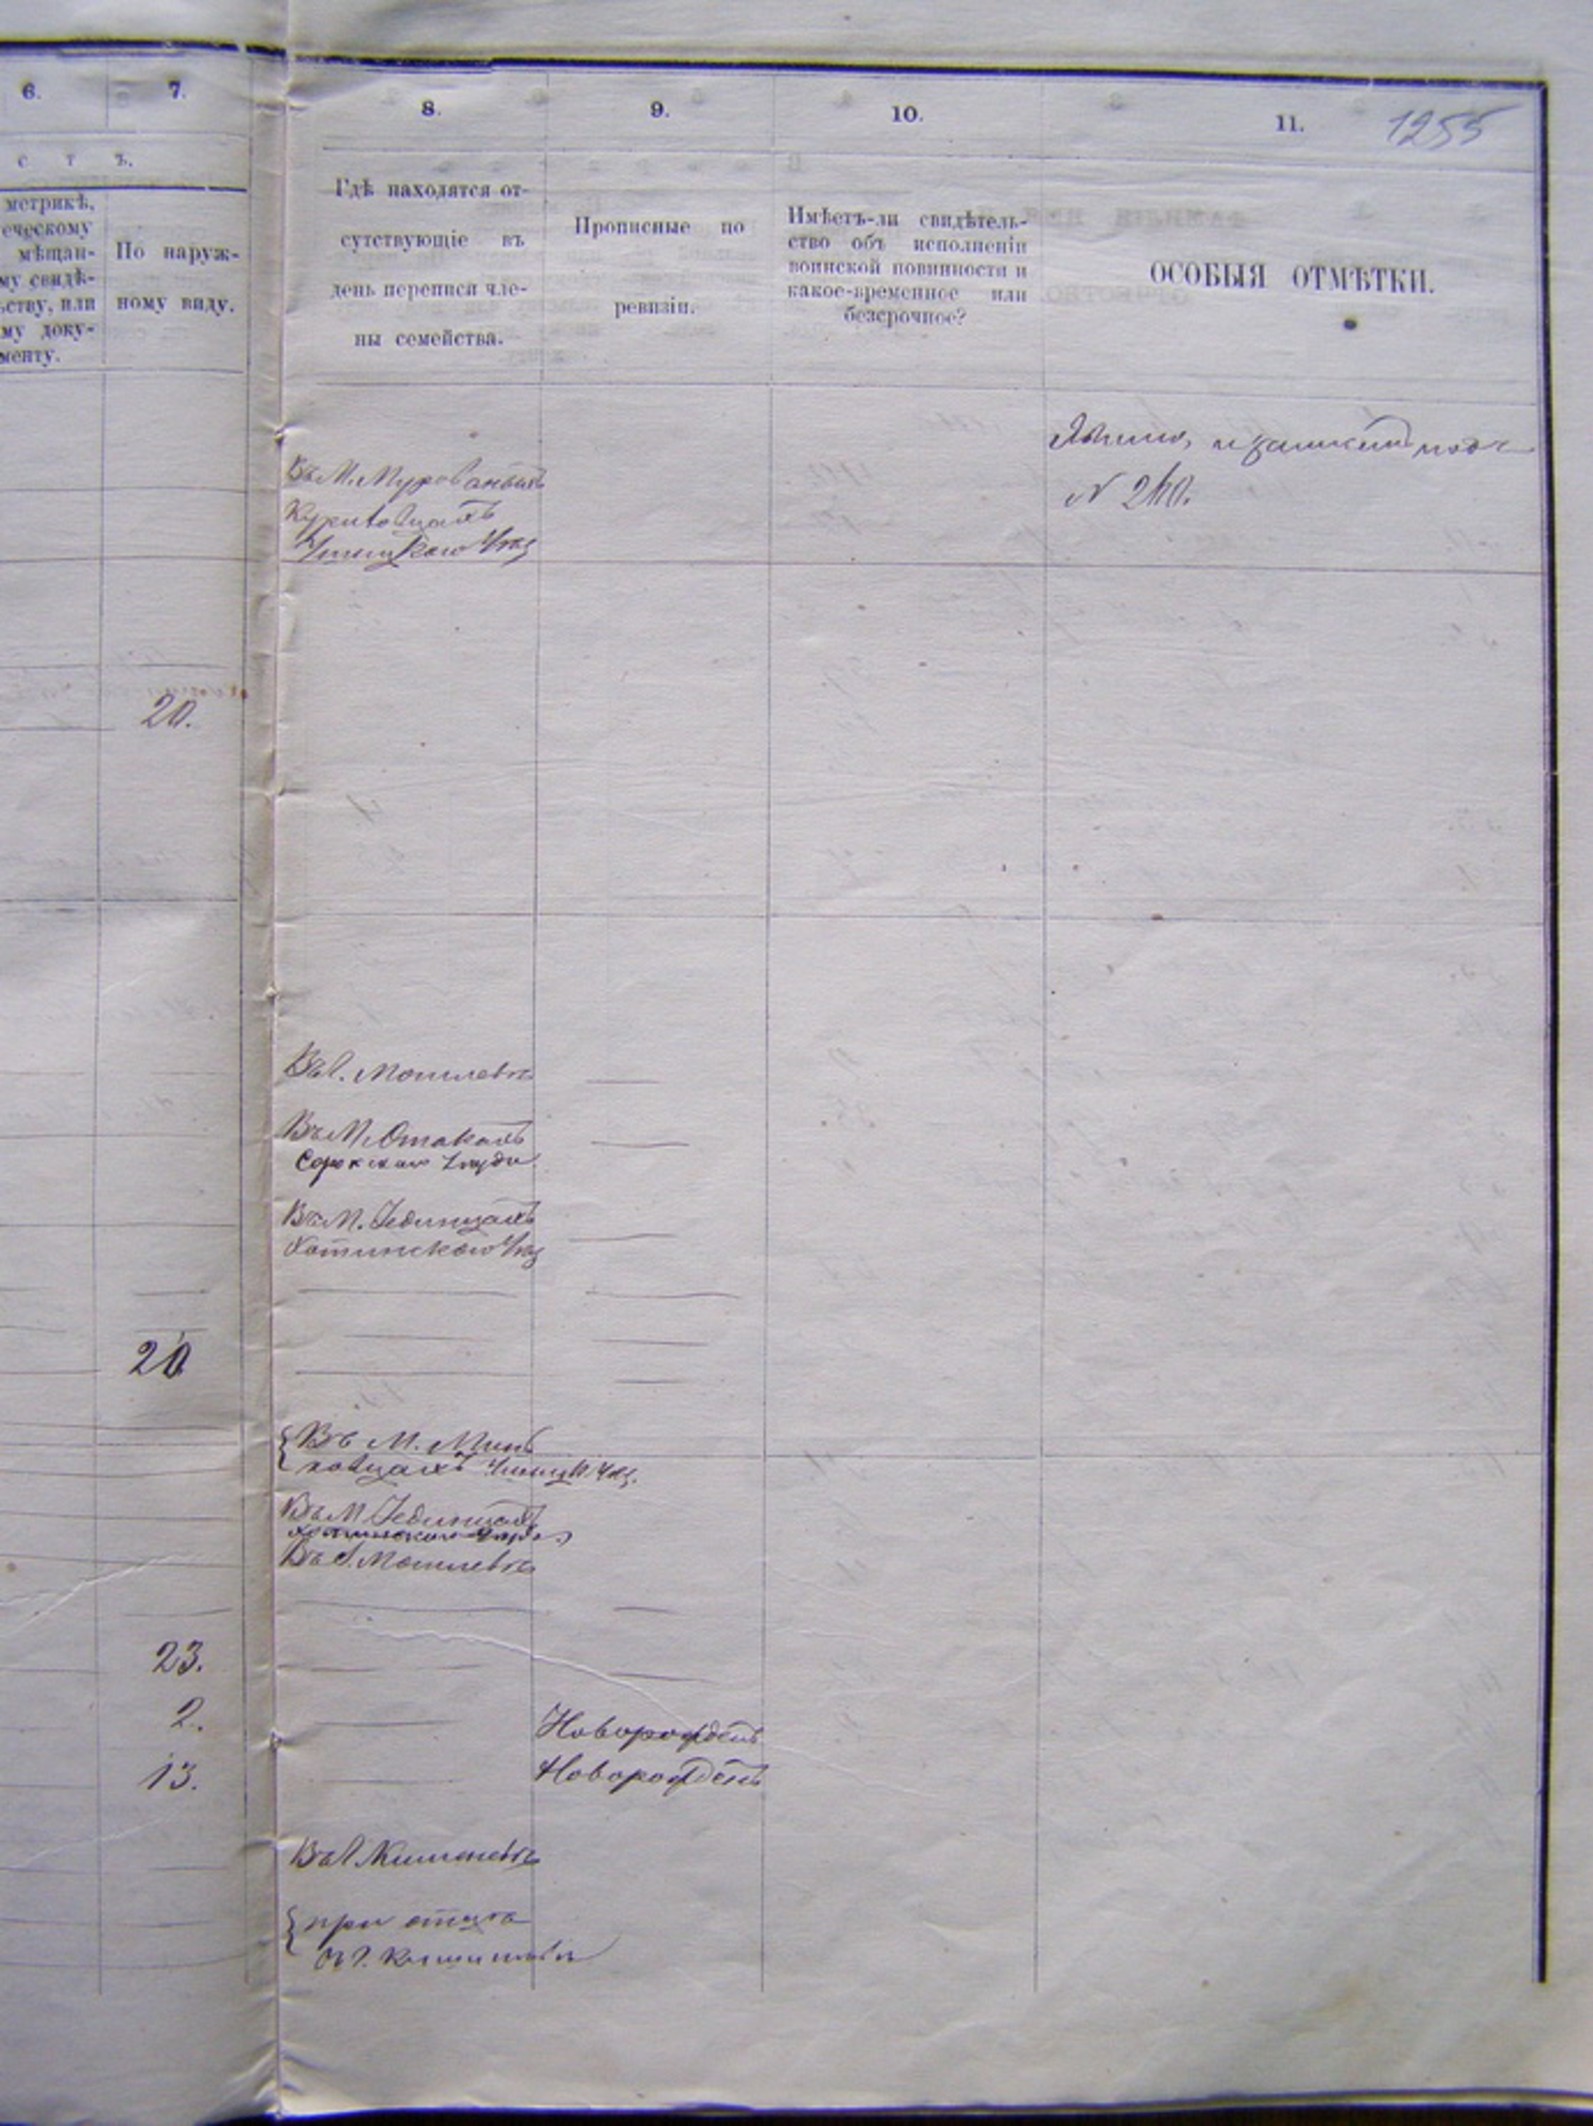 6.
7.
8.
9.
10.
11.
1255
с т ъ.
метрикѣ,
еческому
мѣщан-
му свидѣ-
ьству, или
му доку-
менту.
По наруж-
ному виду.
Гдѣ находятся от-
сутствующіе въ
день переписи чле-
ны семейства.
Прописные по
ревизіи.
Имѣетъ-ли свидѣтель-
ство объ исполненіи
воинской повинности и
какое-временное или
безсрочное?
ОСОБЫЯ ОТМѢТКИ.
подъ
N 240.
Въ М. Мурованныхъ
Куриловцахъ
Ушицкаго Уѣз
20.
Въ г. Могилевѣ
Въ М. Отакахъ
Сорокскаго Уѣзда
Въ М. Единцахъ
Хотинскаго Уѣз
20
Въ М. Минь
ковцахъ Ушицк. Уѣз.
Въ М Единцахъ
Хотинскаго Уѣзда
Въ г. Могилевѣ
23.
2.
Новорожденъ
13.
Новорожденъ
Въ г Кишиневѣ
при отцѣ
въ г. Кишиневѣ